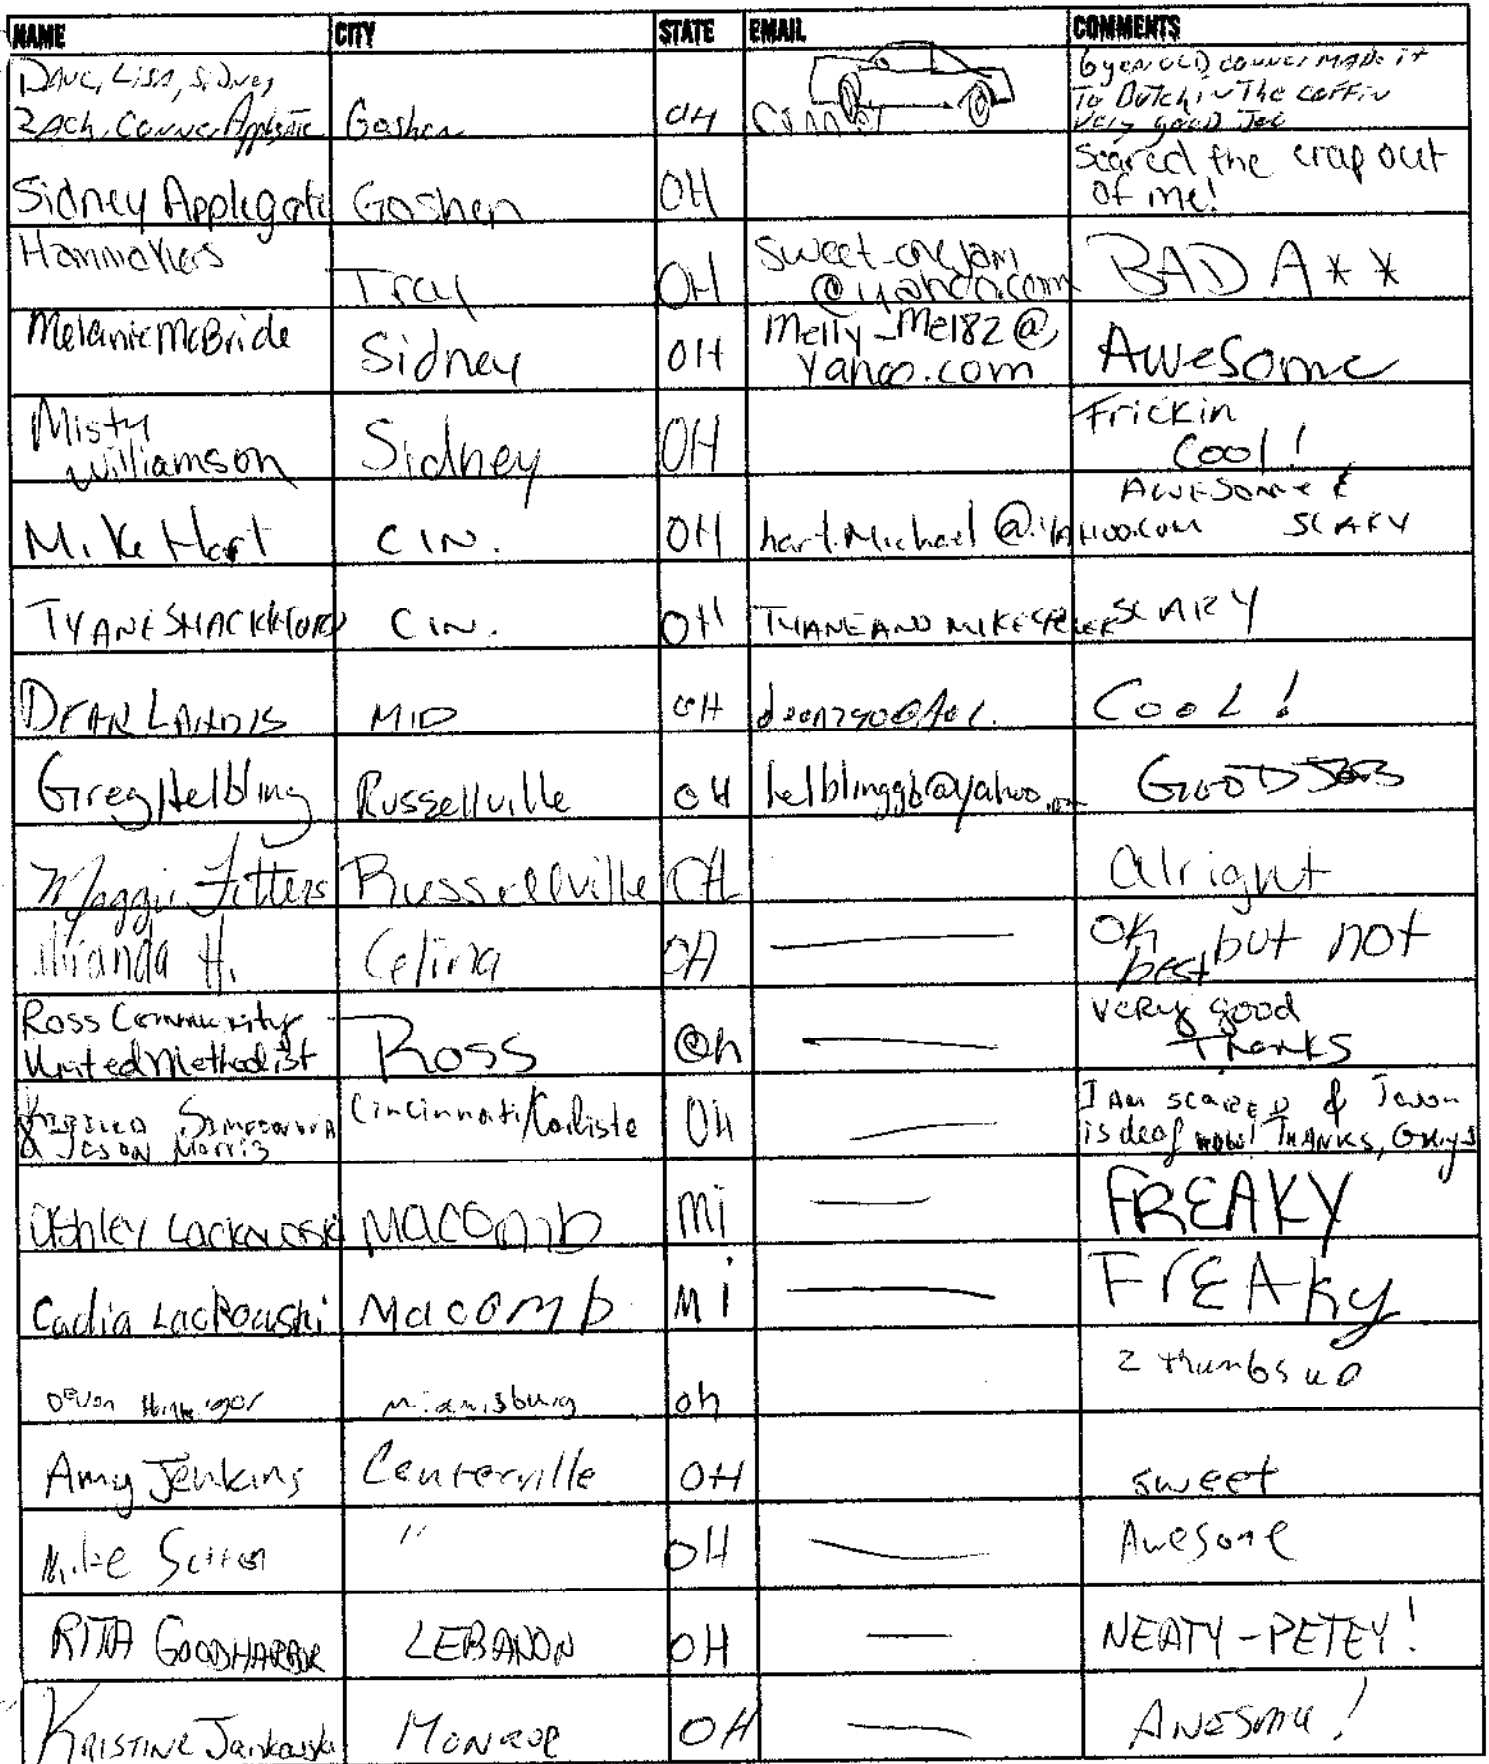 NAME CITY STATE EMAIL COMMENTS
Dave, Lisa, Sidney,
Zach, Conner Applegate Goshen OH Conner
6 year old conner made it
To Dutch in The coffin
very good Job
Sidney Applegate Goshen OH
Scared the crap out
of me!
Hammakers Troy OH
@yahoo.com
BAD A**
Melanie McBride Sidney OH
Melly_Mel82@
Yahoo.com
Awesome
Misty
Williamson Sidney OH
Frickin
Cool!
Mike Hart CIN. OH hart.Michael@YAHOO.COM
AWESOME &
SCARY
TYANE SHACKLEFORD CIN. OH SCARY
DEAN LANDIS MID OH COOL!
Greg Helbling Russellville OH helblinggb@yahoo.com GOOD JOB
Maggie Fetters Russellville OH alright
Miranda H. Celina OH
OK but not
best
Ross Community
United Methodist Ross Oh
very good
Thanks
& Jason Morris Cincinnati/Carlisle OH
I Am scared & Jason
is deaf now! THANKS, Guys
Ashley Lackowski Macomb Mi FREAKY
Cadia Lackowski Macomb Mi FrEAky
Devon Miamisburg oh 2 thumbs up
Amy Jenkins Centerville OH sweet
Mike " OH Awesome
RITA GOODHARBOR LEBANON OH NEATY-PETEY!
KRISTINE Jankowski MONROE OH AWESOME!